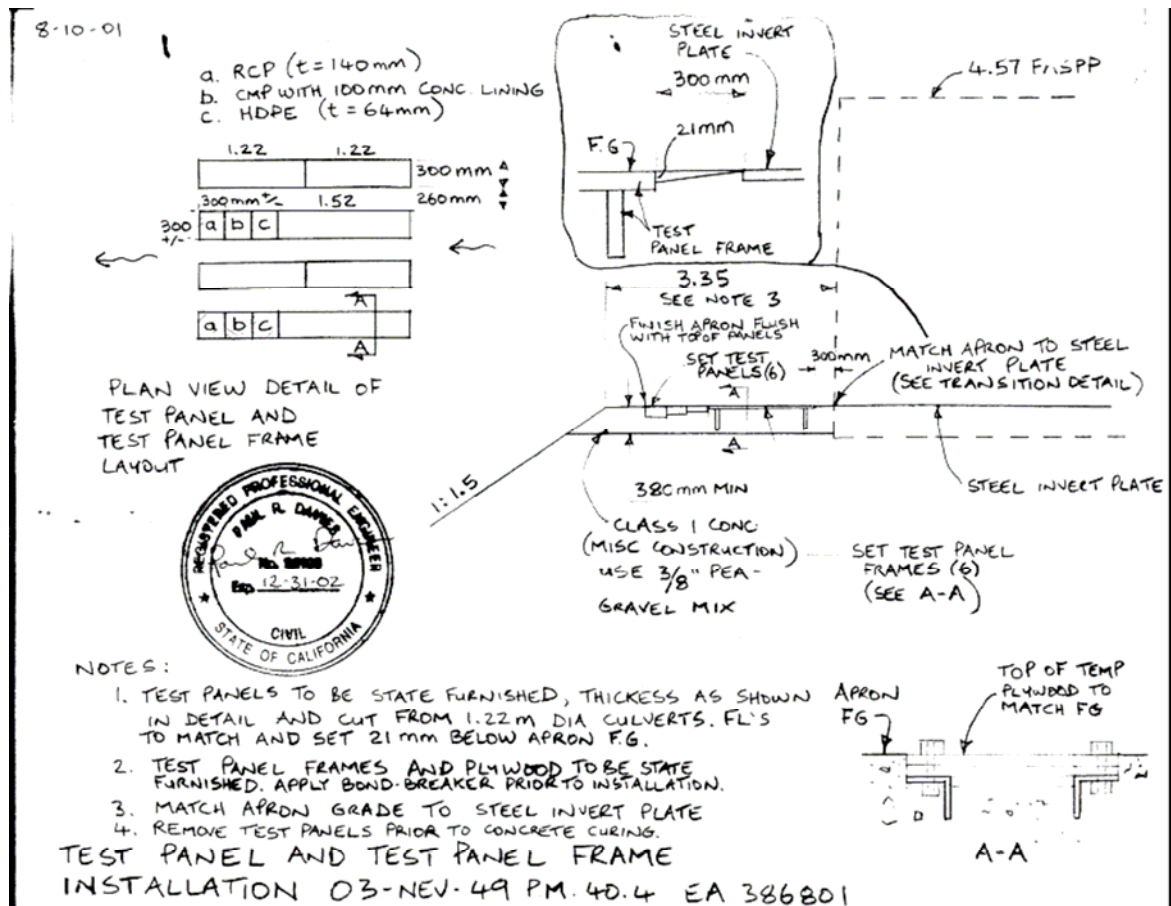 8-10-01
a. RCP (t=140mm)
b. CMP WITH 100mm CONC. LINING
c. HDPE (t=64mm)
1.22 1.22
300mm
300mm +/- 1.52 260mm
300 +/-
a b c
A
a b c
A
PLAN VIEW DETAIL OF
TEST PANEL AND
TEST PANEL FRAME
LAYOUT
STEEL INVERT
PLATE
300mm
F.G
21mm
TEST
PANEL FRAME
4.57
3.35
SEE NOTE 3
FINISH APRON FLUSH
WITH TOP OF PANELS
SET TEST
PANELS (6)
300mm
MATCH APRON TO STEEL
INVERT PLATE
(SEE TRANSITION DETAIL)
A
A
1:1.5
380mm MIN
STEEL INVERT PLATE
CLASS 1 CONC
(MISC CONSTRUCTION)
USE 3/8" PEA-
GRAVEL MIX
SET TEST PANEL
FRAMES (6)
(SEE A-A)
REGISTERED PROFESSIONAL ENGINEER
PAUL R. DAVIES
No.
Exp. 12-31-02
CIVIL
STATE OF CALIFORNIA
NOTES:
1. TEST PANELS TO BE STATE FURNISHED, THICKESS AS SHOWN
IN DETAIL AND CUT FROM 1.22m DIA CULVERTS. FL'S
TO MATCH AND SET 21mm BELOW APRON F.G.
2. TEST PANEL FRAMES AND PLYWOOD TO BE STATE
FURNISHED. APPLY BOND-BREAKER PRIOR TO INSTALLATION.
3. MATCH APRON GRADE TO STEEL INVERT PLATE
4. REMOVE TEST PANELS PRIOR TO CONCRETE CURING.
APRON
FG
TOP OF TEMP
PLYWOOD TO
MATCH FG
A-A
TEST PANEL AND TEST PANEL FRAME
INSTALLATION 03-NEV-49 PM. 40.4 EA 386801